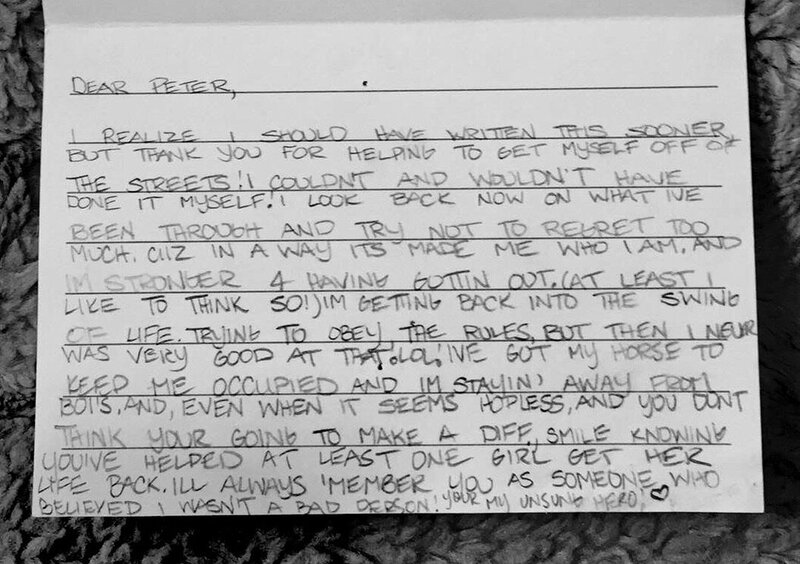 DEAR PETER,
I REALIZE I SHOULD HAVE WRITTEN THIS SOONER,
BUT THANK YOU FOR HELPING TO GET MYSELF OFF OF
THE STREETS! I COULDN'T AND WOULDN'T HAVE
DONE IT MYSELF! I LOOK BACK NOW ON WHAT IVE
BEEN THROUGH AND TRY NOT TO REGRET TOO
MUCH. CUZ IN A WAY ITS MADE ME WHO I AM. AND
IM STRONGER 4 HAVING GOTTIN OUT. (AT LEAST I
LIKE TO THINK SO!) IM GETTING BACK INTO THE SWING
OF LIFE. TRYING TO OBEY THE RULES, BUT THEN I NEVER
WAS VERY GOOD AT THAT. LOL! IVE GOT MY HORSE TO
KEEP ME OCCUPIED AND IM STAYIN' AWAY FROM
BOIS. AND, EVEN WHEN IT SEEMS HOPLESS, AND YOU DONT
THINK YOUR GOING TO MAKE A DIFF, SMILE KNOWING
YOU'VE HELPED AT LEAST ONE GIRL GET HER
LIFE BACK. ILL ALWAYS 'MEMBER YOU AS SOMEONE WHO
BELIEVED I WASN'T A BAD PERSON! YOUR MY UNSUNG HERO! ♡